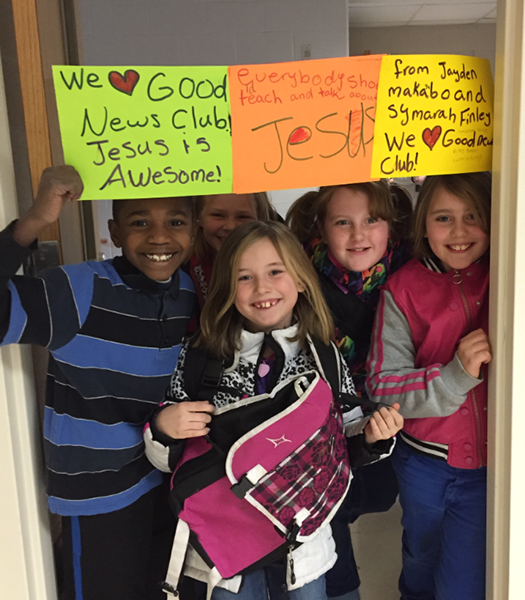 We ❤ Good
News Club!
Jesus is
Awesome!
everybody sho
teach and talk about
Jesus
from Jayden
makaibo and
symarah Finley
We ❤ Good News
Club!